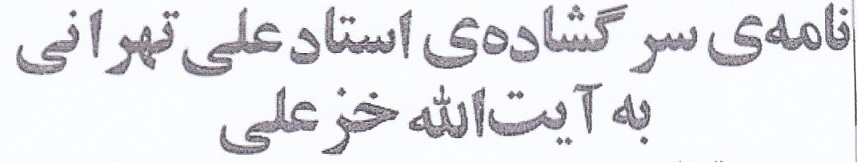 نامه‌ی سر گشاده‌ی استاد علی تهرانی
به آیت‌الله خزعلی